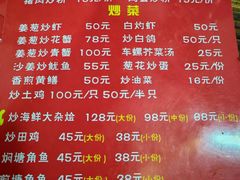 炒菜
姜葱炒虾 50元 白灼虾 50元
姜葱炒花蟹 78元 炒白鸽 50元/只
姜葱炒青蟹 100元 车螺芥菜汤 25元
沙姜炒鱿鱼 55元 葱花炒蛋 25元
香煎黄鳝 50元 炒油菜 18元/份
炒土鸡 100元/只 50元/半只
炒海鲜大杂烩 128元(大份) 98元(中份) 68元(小份)
炒田鸡 45元(大份) 38元(小份)
焖塘角鱼 45元(大份) 38元(小份)
45元(大份) 38元(小份)